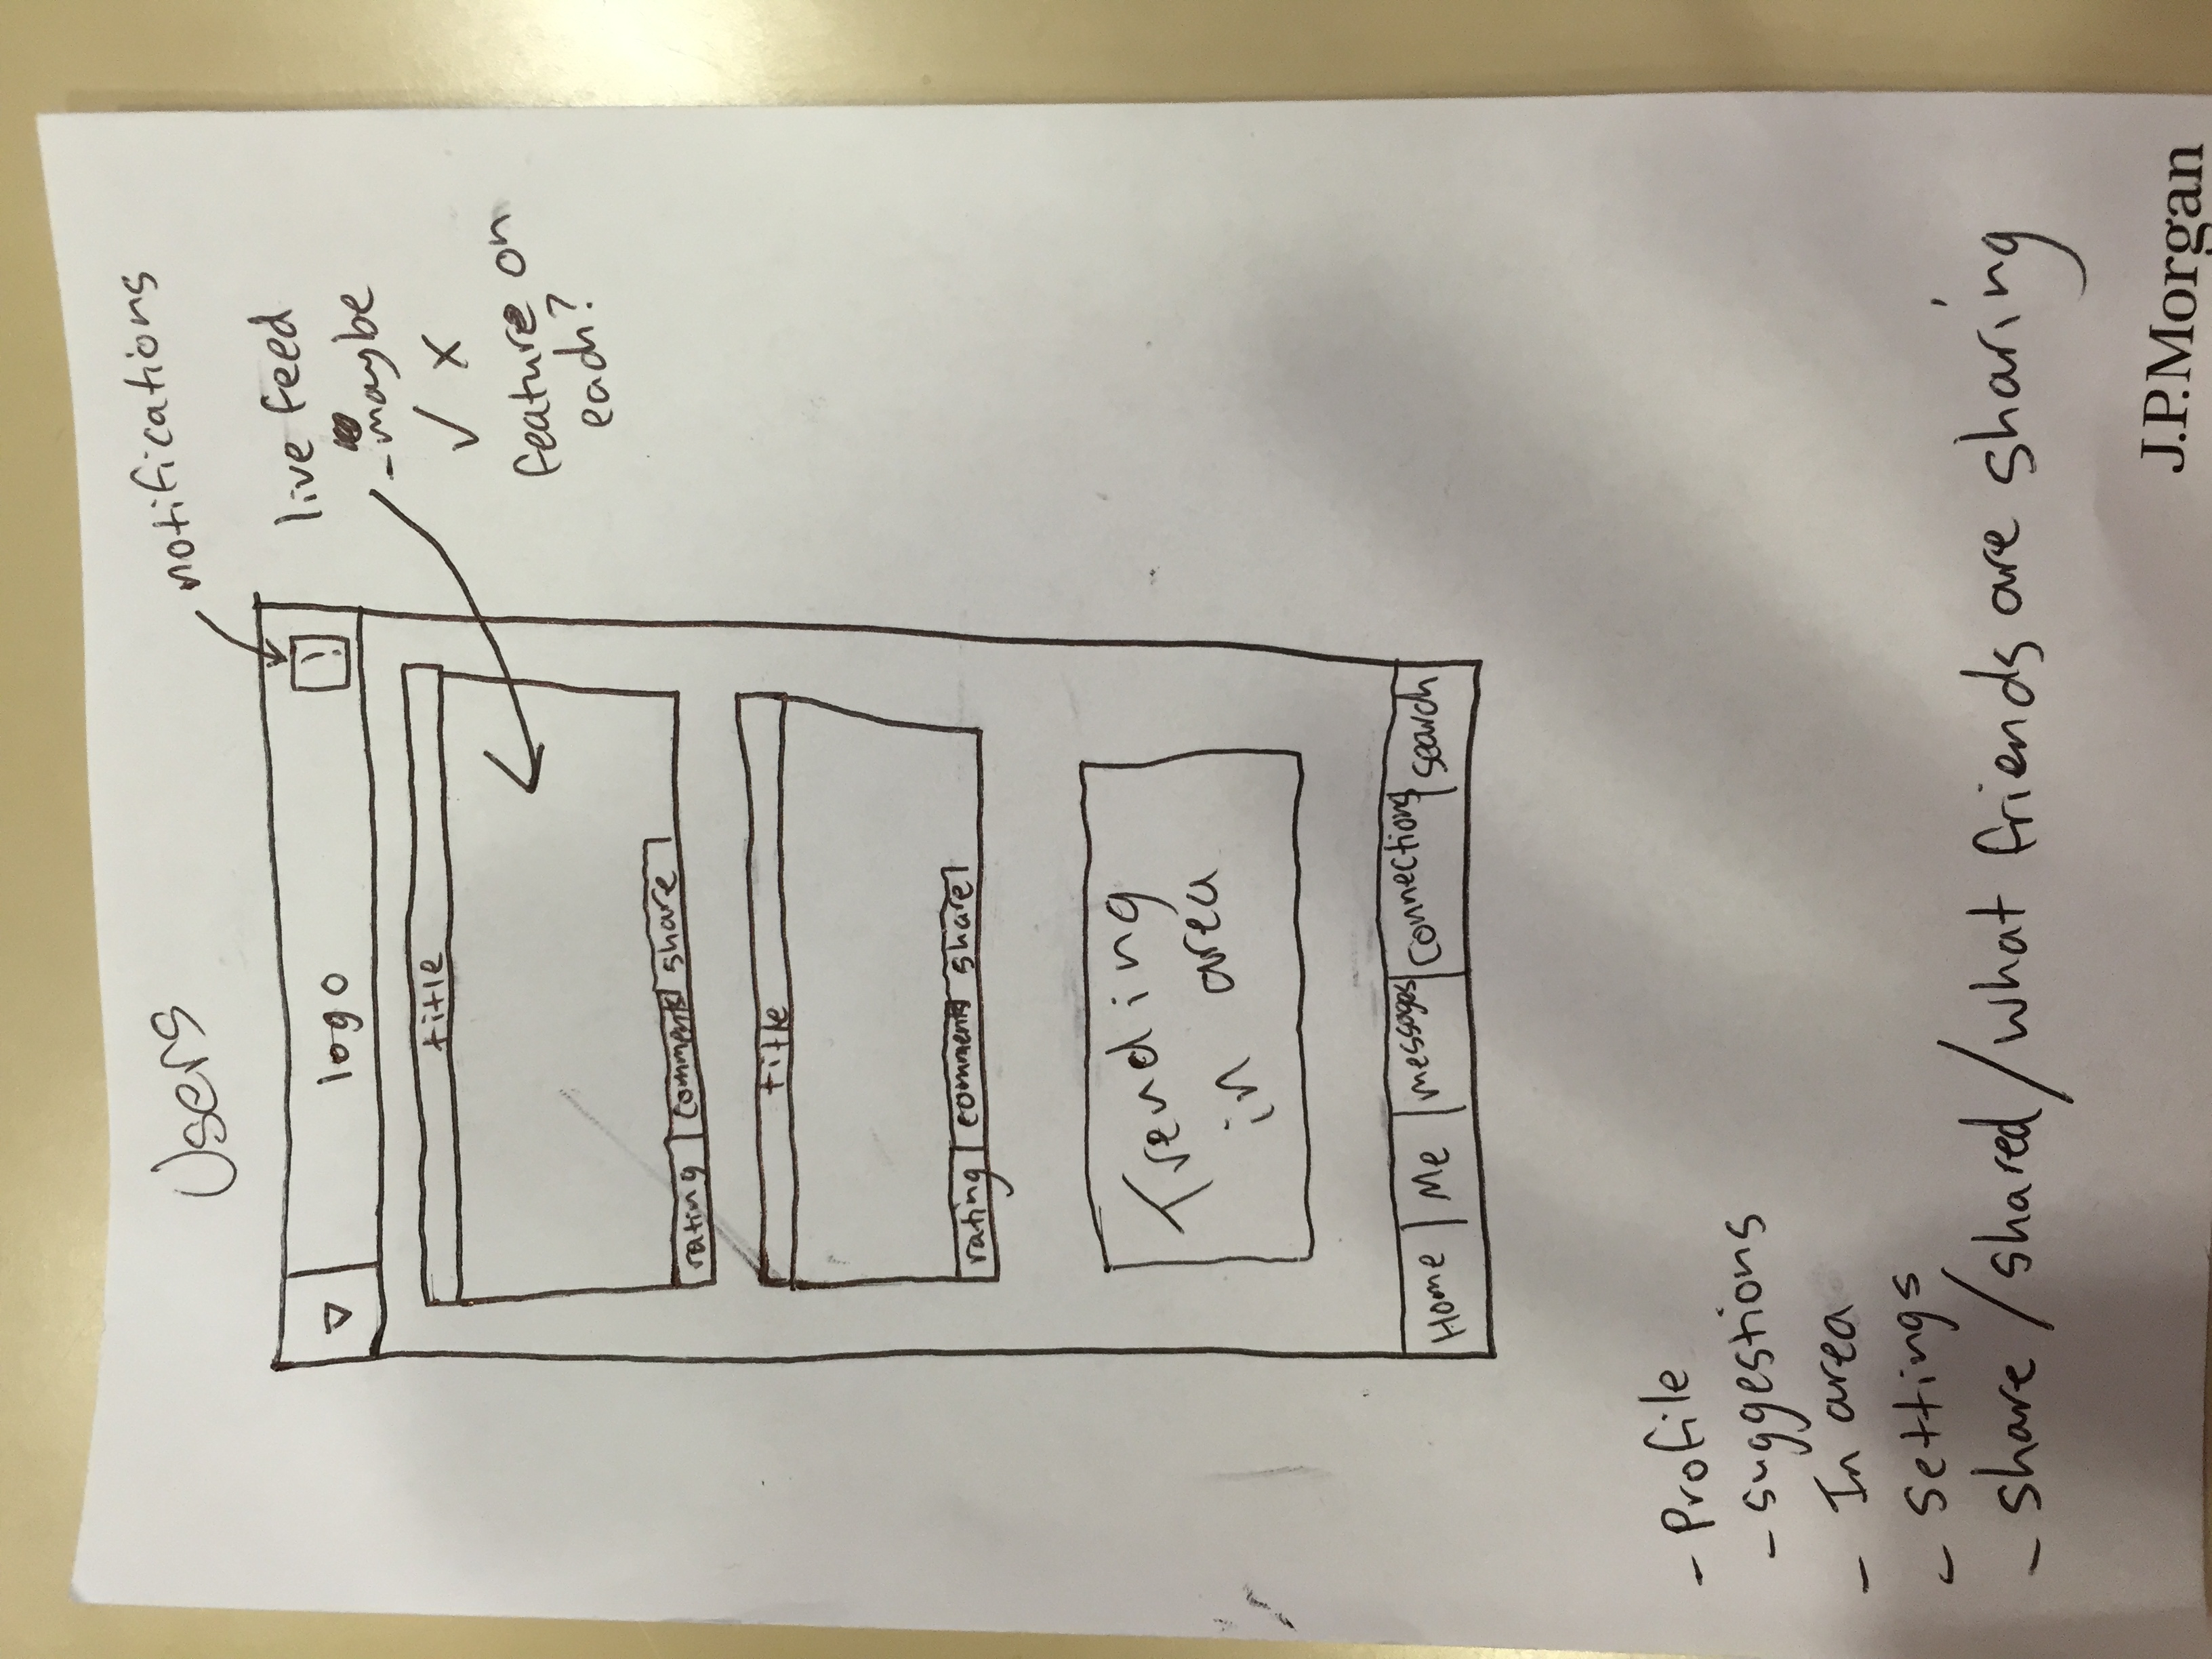 Users
notifications
logo
!
live feed
- maybe
✓ x
feature on
each?
title
rating comments share
title
rating comments share
Trending
in area
Home Me messages Connections search
- Profile
- suggestions
- In area
- Settings
- share / shared / what friends are sharing
J.P.Morgan